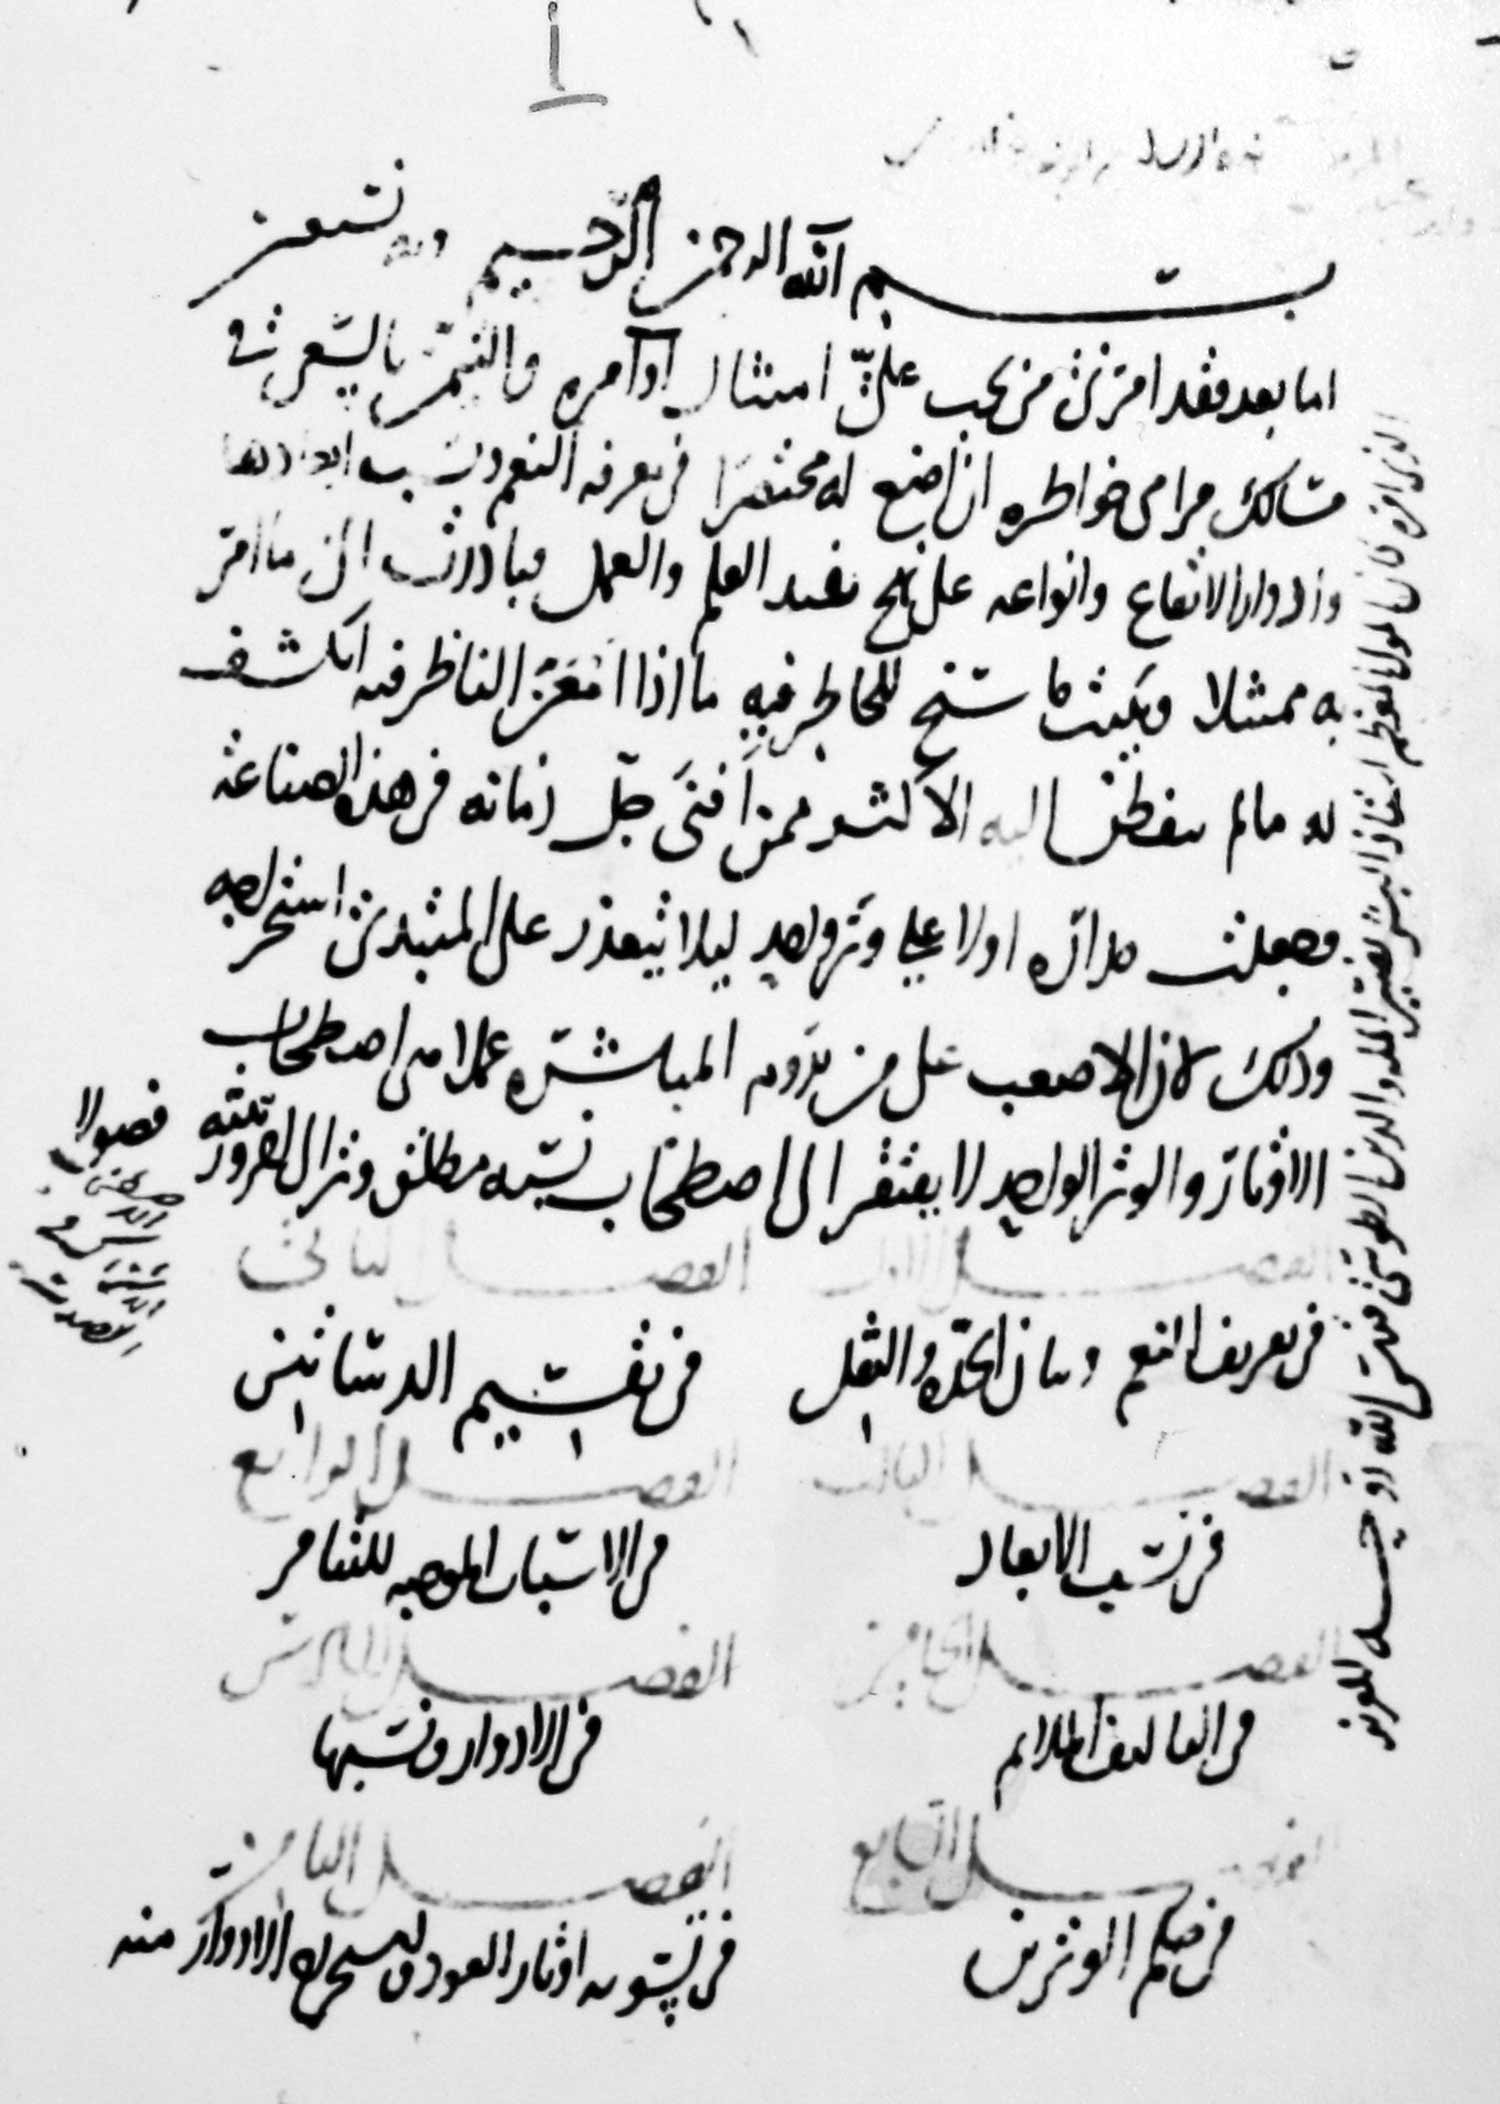 بسم الله الرحمن الرحيم وبه نستعين
اما بعد فقد امرني من يجب علي امتثال اوامره والتيمن بالسعي في
مسالك مرامي خواطره ان اضع له مختصرا في معرفة النغم ونسب ابعادها
وادوار الايقاع وانواعه على نهج يفيد العلم والعمل فبادرت الى ما امر
به ممتثلا وبينت ما سنح للخاطر فيه ما اذا امعن الناظر فيه انكشف
له ما لم يتفطن اليه الاكثر ممن افنى جل زمانه في هذه الصناعة
وجعلت مداره اولا على وتر واحد ليلا يتعذر على المبتدئ استخراجه
وذلك لان الاصعب على من يروم المباشرة عملا هي اصطحاب
الاوتار والوتر الواحد لا يفتقر الى اصطحاب نسبة مطلق وتر الى اخر ورتبته
فصولا
الفصل الاول
الفصل الثاني
في تعريف النغم وبيان الحدة والثقل
في تقسيم الدساتين
الفصل الثالث
الفصل الرابع
في نسب الابعاد
في الاسباب الموجبة للتنافر
الفصل الخامس
الفصل السادس
في التاليف الملايم
في الادوار ونسبها
الفصل السابع
الفصل الثامن
في حكم الوترين
في تسوية اوتار العود واستخراج الادوار منه
الذي امره كان مولانا المعظم استاذ البشر نصير الملة والدين الطوسي قدس الله روحه